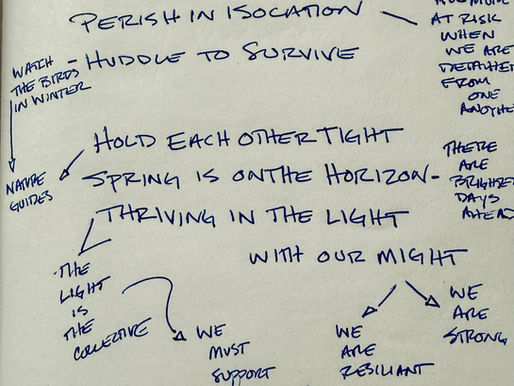 PERISH IN ISOCATION
AT RISK
WHEN
WE ARE
DETATCHED
FROM
ONE
ANOTHER
WATCH
THE BIRDS
IN WINTER
- HUDDLE TO SURVIVE
HOLD EACH OTHER TIGHT
NATURE
GUIDES
SPRING IS ON THE HORIZON -
THERE
ARE
BRIGHTER
DAYS
AHEAD
THRIVING IN THE LIGHT
WITH OUR MIGHT
THE
LIGHT
IS
THE
COLLECTIVE
WE
MUST
SUPPORT
WE
ARE
RESILIANT
WE
ARE
STRONG